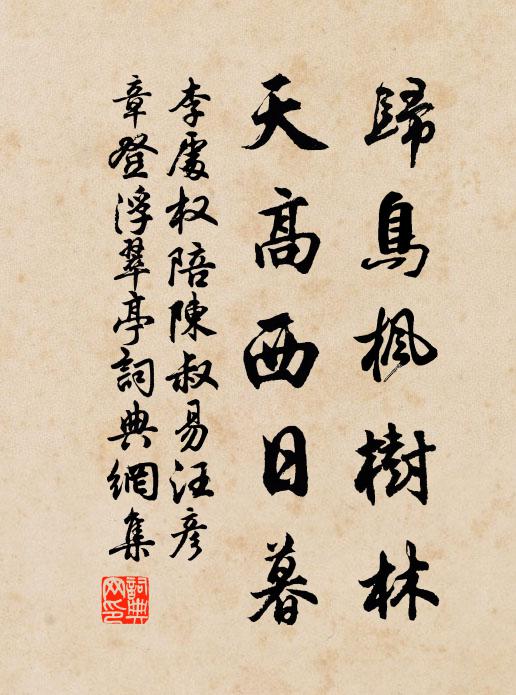 歸鳥楓樹林
天高西日暮
李處权陪陳叔易汪彥
章登浮翠亭詞典網集
詞典网印